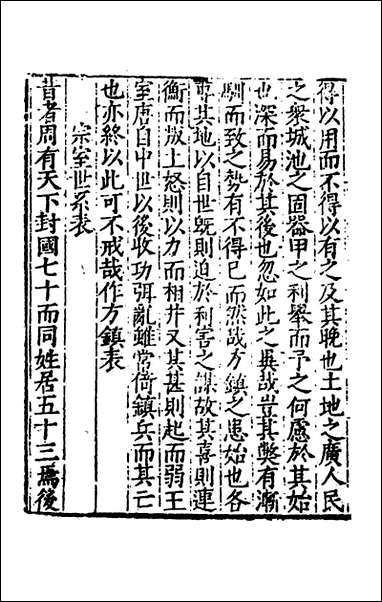 得以用而不得以有之及其晚也土地之廣人民
之衆城池之固器甲之利舉而予之何慮於其始
也深而易於其後也忽如此之異哉豈其弊有漸
馴而致之勢有不得已而然哉方鎮之患始也各
專其地以自世旣則迫於利害之謀故其喜則連
衡而叛上怒則以力而相并又其甚則起而弱王
室唐自中世以後收功弭亂雖常倚鎮兵而其亡
也亦終以此可不戒哉作方鎮表
宗室世系表
昔者周有天下封國七十而同姓居五十三焉後